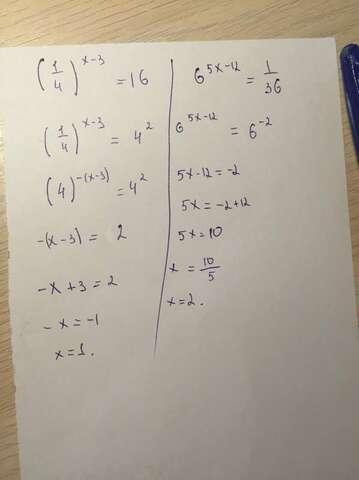 (1/4)^(x-3) = 16
(1/4)^(x-3) = 4^2
(4)^(-(x-3)) = 4^2
-(x-3) = 2
-x+3 = 2
-x = -1
x = 1.
6^(5x-12) = 1/36
6^(5x-12) = 6^(-2)
5x-12 = -2
5x = -2+12
5x = 10
x = 10/5
x = 2.